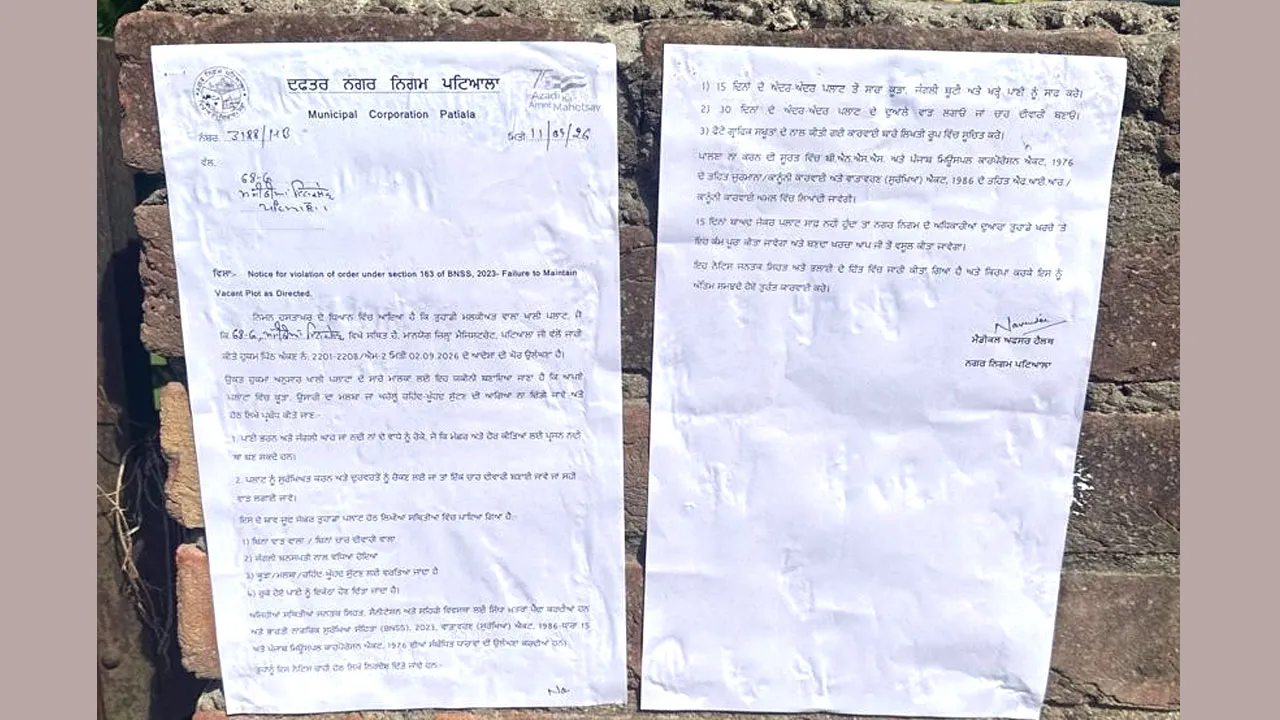 ਦਫਤਰ ਨਗਰ ਨਿਗਮ ਪਟਿਆਲਾ
Municipal Corporation Patiala
Azadi Ka
Amrit Mahotsav
ਨੰਬਰ 3188/MB
ਮਿਤੀ 11/05/26
ਵੱਲ,
68-G
ਪਟਿਆਲਾ।
ਵਿਸ਼ਾ:- Notice for violation of order under section 163 of BNSS, 2023- Failure to Maintain
Vacant Plot as Directed.
ਨਿਮਨ ਹਸਤਾਖਰ ਦੇ ਧਿਆਨ ਵਿੱਚ ਆਇਆ ਹੈ ਕਿ ਤੁਹਾਡੀ ਮਲਕੀਅਤ ਵਾਲਾ ਖਾਲੀ ਪਲਾਟ, ਜੋ
ਕਿ 68-G, ਵਿਖੇ ਸਥਿਤ ਹੈ, ਮਾਨਯੋਗ ਜਿਲ੍ਹਾ ਮੈਜਿਸਟਰੇਟ, ਪਟਿਆਲਾ ਜੀ ਵੱਲੋਂ ਜਾਰੀ
ਕੀਤੇ ਹੁਕਮ ਪਿੱਠ ਅੰਕਣ ਨੰ: 2201-2208/ਐਮ-2 ਮਿਤੀ 02.09.2026 ਦੇ ਆਦੇਸ਼ਾਂ ਦੀ ਘੋਰ ਉਲੰਘਣਾ ਹੈ।
ਉਕਤ ਹੁਕਮਾਂ ਅਨੁਸਾਰ ਖਾਲੀ ਪਲਾਟਾਂ ਦੇ ਸਾਰੇ ਮਾਲਕਾਂ ਲਈ ਇਹ ਯਕੀਨੀ ਬਣਾਇਆ ਜਾਣਾ ਹੈ ਕਿ ਆਪਣੇ
ਪਲਾਟ ਵਿੱਚ ਕੂੜਾ, ਉਸਾਰੀ ਦਾ ਮਲਬਾ ਜਾਂ ਘਰੇਲੂ ਰਹਿੰਦ-ਖੂੰਹਦ ਸੁੱਟਣ ਦੀ ਆਗਿਆ ਨਾ ਦਿੱਤੀ ਜਾਵੇ ਅਤੇ
ਹੇਠ ਲਿਖੇ ਪ੍ਰਬੰਧ ਕੀਤੇ ਜਾਣ:-
1. ਪਾਣੀ ਭਰਨ ਅਤੇ ਜੰਗਲੀ ਦੇ ਵਾਧੇ ਨੂੰ ਰੋਕੋ, ਜੋ ਕਿ ਮੱਛਰ ਅਤੇ ਹੋਰ ਕੀੜਿਆਂ ਲਈ ਪ੍ਰਜਨਨ
ਬਣ ਸਕਦੇ ਹਨ।
2. ਪਲਾਟ ਨੂੰ ਸੁਰੱਖਿਅਤ ਕਰਨ ਅਤੇ ਦੁਰਵਰਤੋਂ ਨੂੰ ਰੋਕਣ ਲਈ ਜਾਂ ਤਾਂ ਇੱਕ ਚਾਰ ਦੀਵਾਰੀ ਬਣਾਈ ਜਾਵੇ ਜਾਂ ਸਹੀ
ਵਾੜ ਲਗਾਈ ਜਾਵੇ।
ਇਸ ਦੇ ਬਾਵਜੂਦ ਤੁਹਾਡਾ ਪਲਾਟ ਹੇਠ ਲਿਖੀਆਂ ਸਥਿਤੀਆਂ ਵਿੱਚ ਪਾਇਆ ਗਿਆ ਹੈ:-
1) ਬਿਨਾਂ ਵਾੜ ਵਾਲਾ / ਬਿਨਾਂ ਚਾਰ ਦੀਵਾਰੀ ਵਾਲਾ
2) ਜੰਗਲੀ ਬਨਸਪਤੀ ਨਾਲ ਵਧਿਆ ਹੋਇਆ
3) ਕੂੜਾ/ਮਲਬਾ/ਰਹਿੰਦ-ਖੂੰਹਦ ਸੁੱਟਣ ਲਈ ਵਰਤਿਆ ਜਾਂਦਾ ਹੈ
4) ਰੁਕੇ ਹੋਏ ਪਾਣੀ ਨੂੰ ਇਕੱਠਾ ਹੋਣ ਦਿੱਤਾ ਜਾਂਦਾ ਹੈ।
ਅਜਿਹੀਆਂ ਸਥਿਤੀਆਂ ਜਨਤਕ ਸਿਹਤ, ਸੈਨੀਟੇਸ਼ਨ ਅਤੇ ਸ਼ਹਿਰੀ ਵਿਵਸਥਾ ਲਈ ਸਿੱਧਾ ਖਤਰਾ ਪੈਦਾ ਕਰਦੀਆਂ ਹਨ
ਅਤੇ ਭਾਰਤੀ ਨਾਗਰਿਕ ਸੁਰੱਖਿਆ ਸੰਹਿਤਾ (BNSS), 2023, ਵਾਤਾਵਰਣ (ਸੁਰੱਖਿਆ) ਐਕਟ, 1986-ਧਾਰਾ 15
ਅਤੇ ਪੰਜਾਬ ਮਿਉਂਸਪਲ ਕਾਰਪੋਰੇਸ਼ਨ ਐਕਟ, 1976 ਦੀਆਂ ਸੰਬੰਧਿਤ ਧਾਰਾਵਾਂ ਦੀ ਉਲੰਘਣਾ ਕਰਦੀਆਂ ਹਨ।
ਤੁਹਾਨੂੰ ਇਸ ਨੋਟਿਸ ਰਾਹੀਂ ਹੇਠ ਲਿਖੇ ਨਿਰਦੇਸ਼ ਦਿੱਤੇ ਜਾਂਦੇ ਹਨ:-
1) 15 ਦਿਨਾਂ ਦੇ ਅੰਦਰ-ਅੰਦਰ ਪਲਾਟ ਤੋਂ ਸਾਰਾ ਕੂੜਾ, ਜੰਗਲੀ ਬੂਟੀ ਅਤੇ ਖੜ੍ਹੇ ਪਾਣੀ ਨੂੰ ਸਾਫ਼ ਕਰੋ.
2) 30 ਦਿਨਾਂ ਦੇ ਅੰਦਰ-ਅੰਦਰ ਪਲਾਟ ਦੇ ਦੁਆਲੇ ਵਾੜ ਲਗਾਓ ਜਾਂ ਚਾਰ ਦੀਵਾਰੀ ਬਣਾਓ.
3) ਫੋਟੋ ਗ੍ਰਾਫਿਕ ਸਬੂਤਾਂ ਦੇ ਨਾਲ ਕੀਤੀ ਗਈ ਕਾਰਵਾਈ ਬਾਰੇ ਲਿਖਤੀ ਰੂਪ ਵਿੱਚ ਸੂਚਿਤ ਕਰੋ.
ਪਾਲਣਾ ਨਾ ਕਰਨ ਦੀ ਸੂਰਤ ਵਿੱਚ ਬੀ.ਐਨ.ਐਸ.ਐਸ. ਅਤੇ ਪੰਜਾਬ ਮਿਊਂਸਪਲ ਕਾਰਪੋਰੇਸ਼ਨ ਐਕਟ, 1976
ਦੇ ਤਹਿਤ ਜੁਰਮਾਨਾ/ਕਾਨੂੰਨੀ ਕਾਰਵਾਈ ਅਤੇ ਵਾਤਾਵਰਣ (ਸੁਰੱਖਿਆ) ਐਕਟ, 1986 ਦੇ ਤਹਿਤ ਐਫ.ਆਈ.ਆਰ/
ਕਾਨੂੰਨੀ ਕਾਰਵਾਈ ਅਮਲ ਵਿੱਚ ਲਿਆਂਦੀ ਜਾਵੇਗੀ।
15 ਦਿਨਾਂ ਬਾਅਦ ਜੇਕਰ ਪਲਾਟ ਸਾਫ਼ ਨਹੀਂ ਹੁੰਦਾ ਤਾਂ ਨਗਰ ਨਿਗਮ ਦੇ ਅਧਿਕਾਰੀਆਂ ਦੁਆਰਾ ਤੁਹਾਡੇ ਖਰਚੇ 'ਤੇ
ਇਹ ਕੰਮ ਪੂਰਾ ਕੀਤਾ ਜਾਵੇਗਾ ਅਤੇ ਬਣਦਾ ਖਰਚਾ ਆਪ ਜੀ ਤੋਂ ਵਸੂਲ ਕੀਤਾ ਜਾਵੇਗਾ।
ਇਹ ਨੋਟਿਸ ਜਨਤਕ ਸਿਹਤ ਅਤੇ ਭਲਾਈ ਦੇ ਹਿੱਤ ਵਿੱਚ ਜਾਰੀ ਕੀਤਾ ਗਿਆ ਹੈ ਅਤੇ ਕਿਰਪਾ ਕਰਕੇ ਇਸ ਨੂੰ
ਅੰਤਿਮ ਸਮਝਦੇ ਹੋਏ ਤੁਰੰਤ ਕਾਰਵਾਈ ਕਰੋ।
ਮੈਡੀਕਲ ਅਫਸਰ ਹੈਲਥ
ਨਗਰ ਨਿਗਮ ਪਟਿਆਲਾ